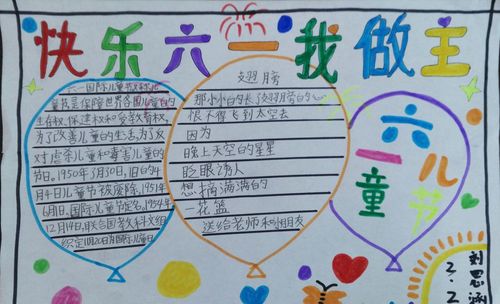 快乐六一我做主
六一国际儿童节
节是保障世界各国儿童的
生存权、保健权和受教育权,
为了改善儿童的生活,为了反
对虐杀儿童和毒害儿童的
节日。1950年3月30,旧的4
月4日儿童节被废除,1951年
6月1日,国际儿童节定名,1954年
12月14日,联合国教科文组
织定11月20日为国际儿童日
翅膀
那小小的长了翅膀的心
恨不得飞到太空去
因为
晚上天空的星星
眨眼诱人
想摘满满的
一花篮
送给老师和小朋友
六一
儿童节
刘思涵
2.2